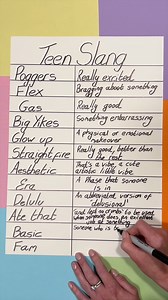 Teen Slang
Poggers Really excited
Flex Bragging about something
Gas Really good
Big Yikes Something embarrassing
Glow up A physical or emotional
makeover
Straight fire Really good, better than
the rest
Aesthetic That's a vibe, a cute
artistic little vibe
Era A Phase that someone
is in
Delulu An abbreviated version of
delusional
Ate that to be used
when someone does an excellent
job at something
Basic Someone who is
Fam